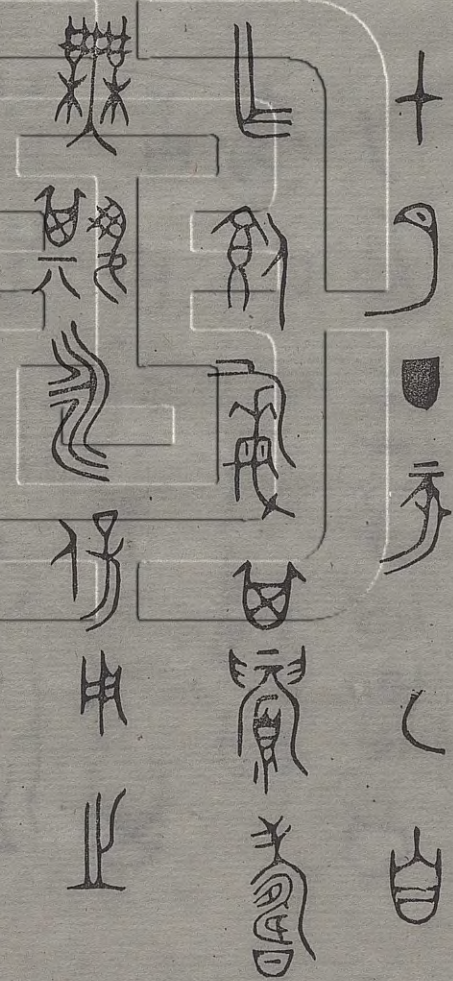 十月丁亥乙自
乍飤其眉壽
無期永保用之